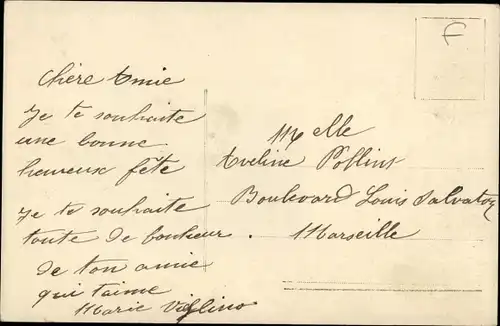 Chère Amie
Je te souhaite
une bonne
heureux fête
Je te souhaite
toute de bonheur.
de ton amie
qui t'aime
Marie
F
Melle
Eveline
Boulevard Louis Salvator
Marseille